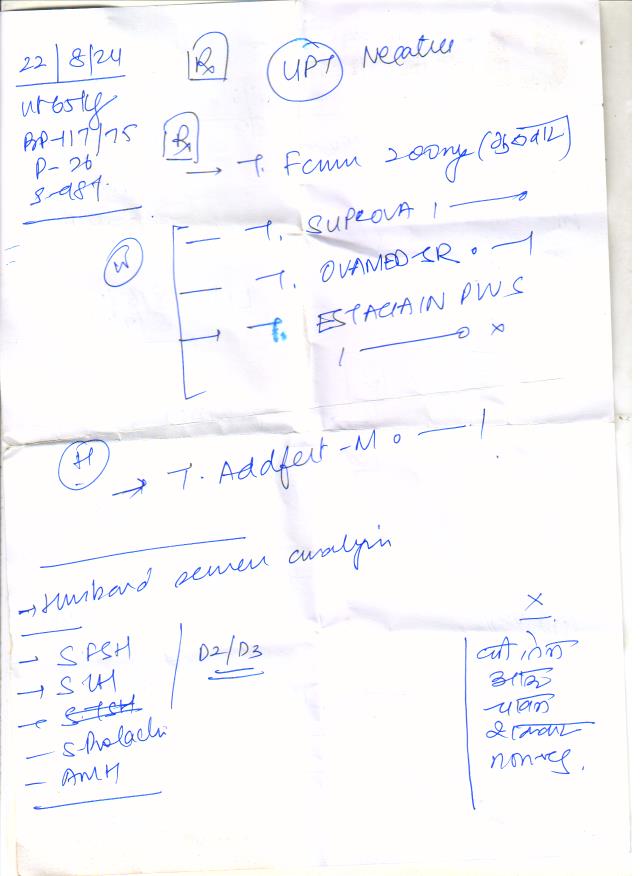 22/8/24
Rx
UPT Negative
Wt 65kg
BP-117/75
P-
S-98%
Rx
→ T. 200mg
W
— T. SUPROVA 1 — 0
— T. OVAMED-SR 0 — 1
→ T. PWS
1 — 0 x
H
→ T. Addfert-M 0 — 1
→ Husband semen analysis
— S FSH
→ S LH
S. TSH
— S. Prolactin
— AMH
D2/D3
X
घी, तेल
आलू
चावल
non-veg.